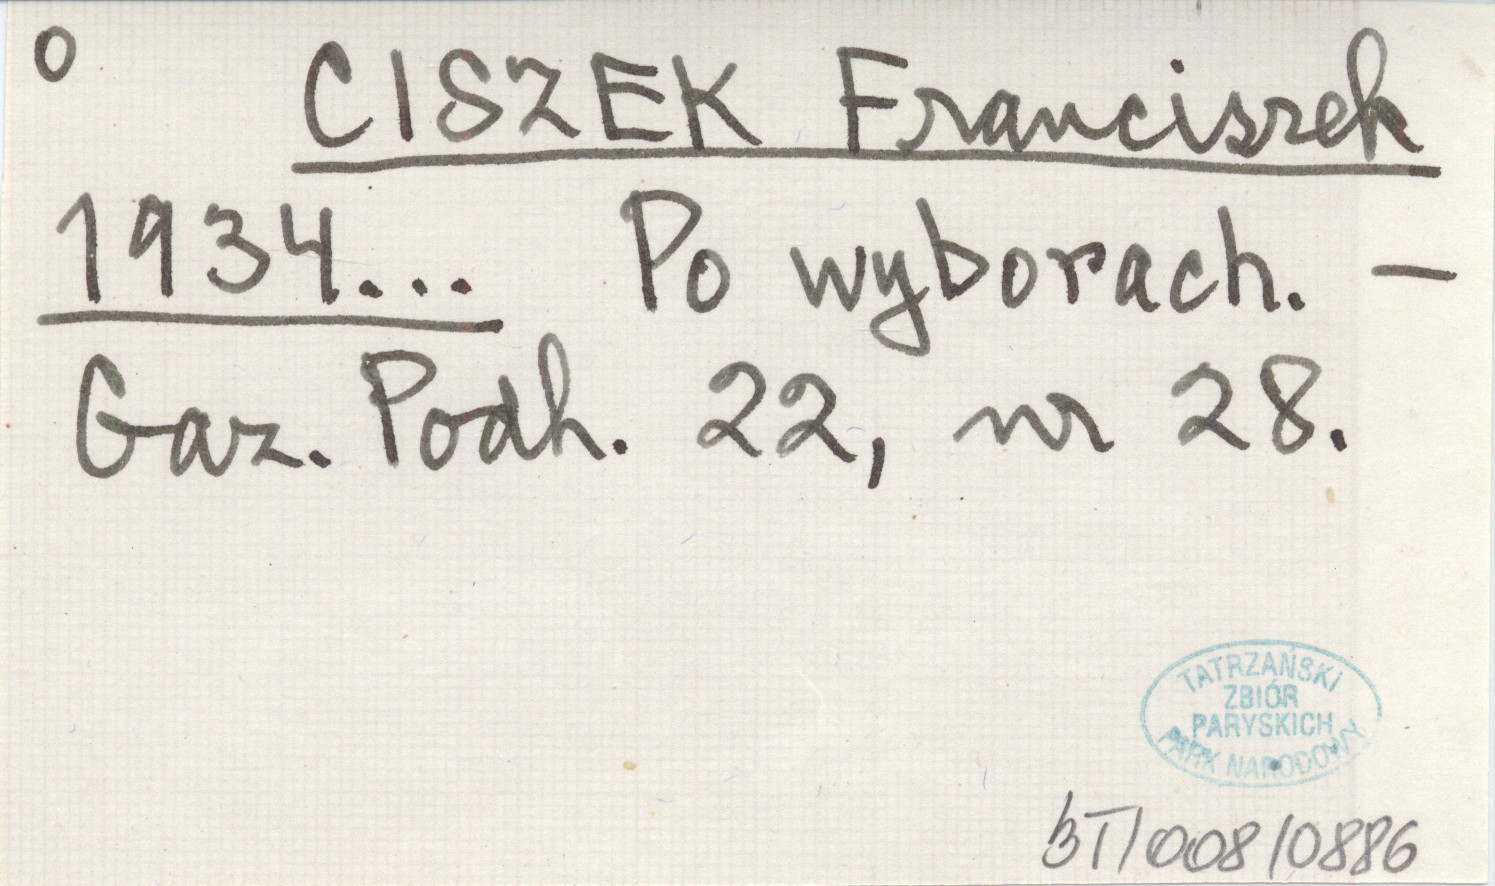 o CISZEK Franciszek
1934... Po wyborach. —
Gaz. Podh. 22, nr 28.
TATRZAŃSKI
ZBIÓR
PARYSKICH
PARK NARODOWY
BT/008/0886